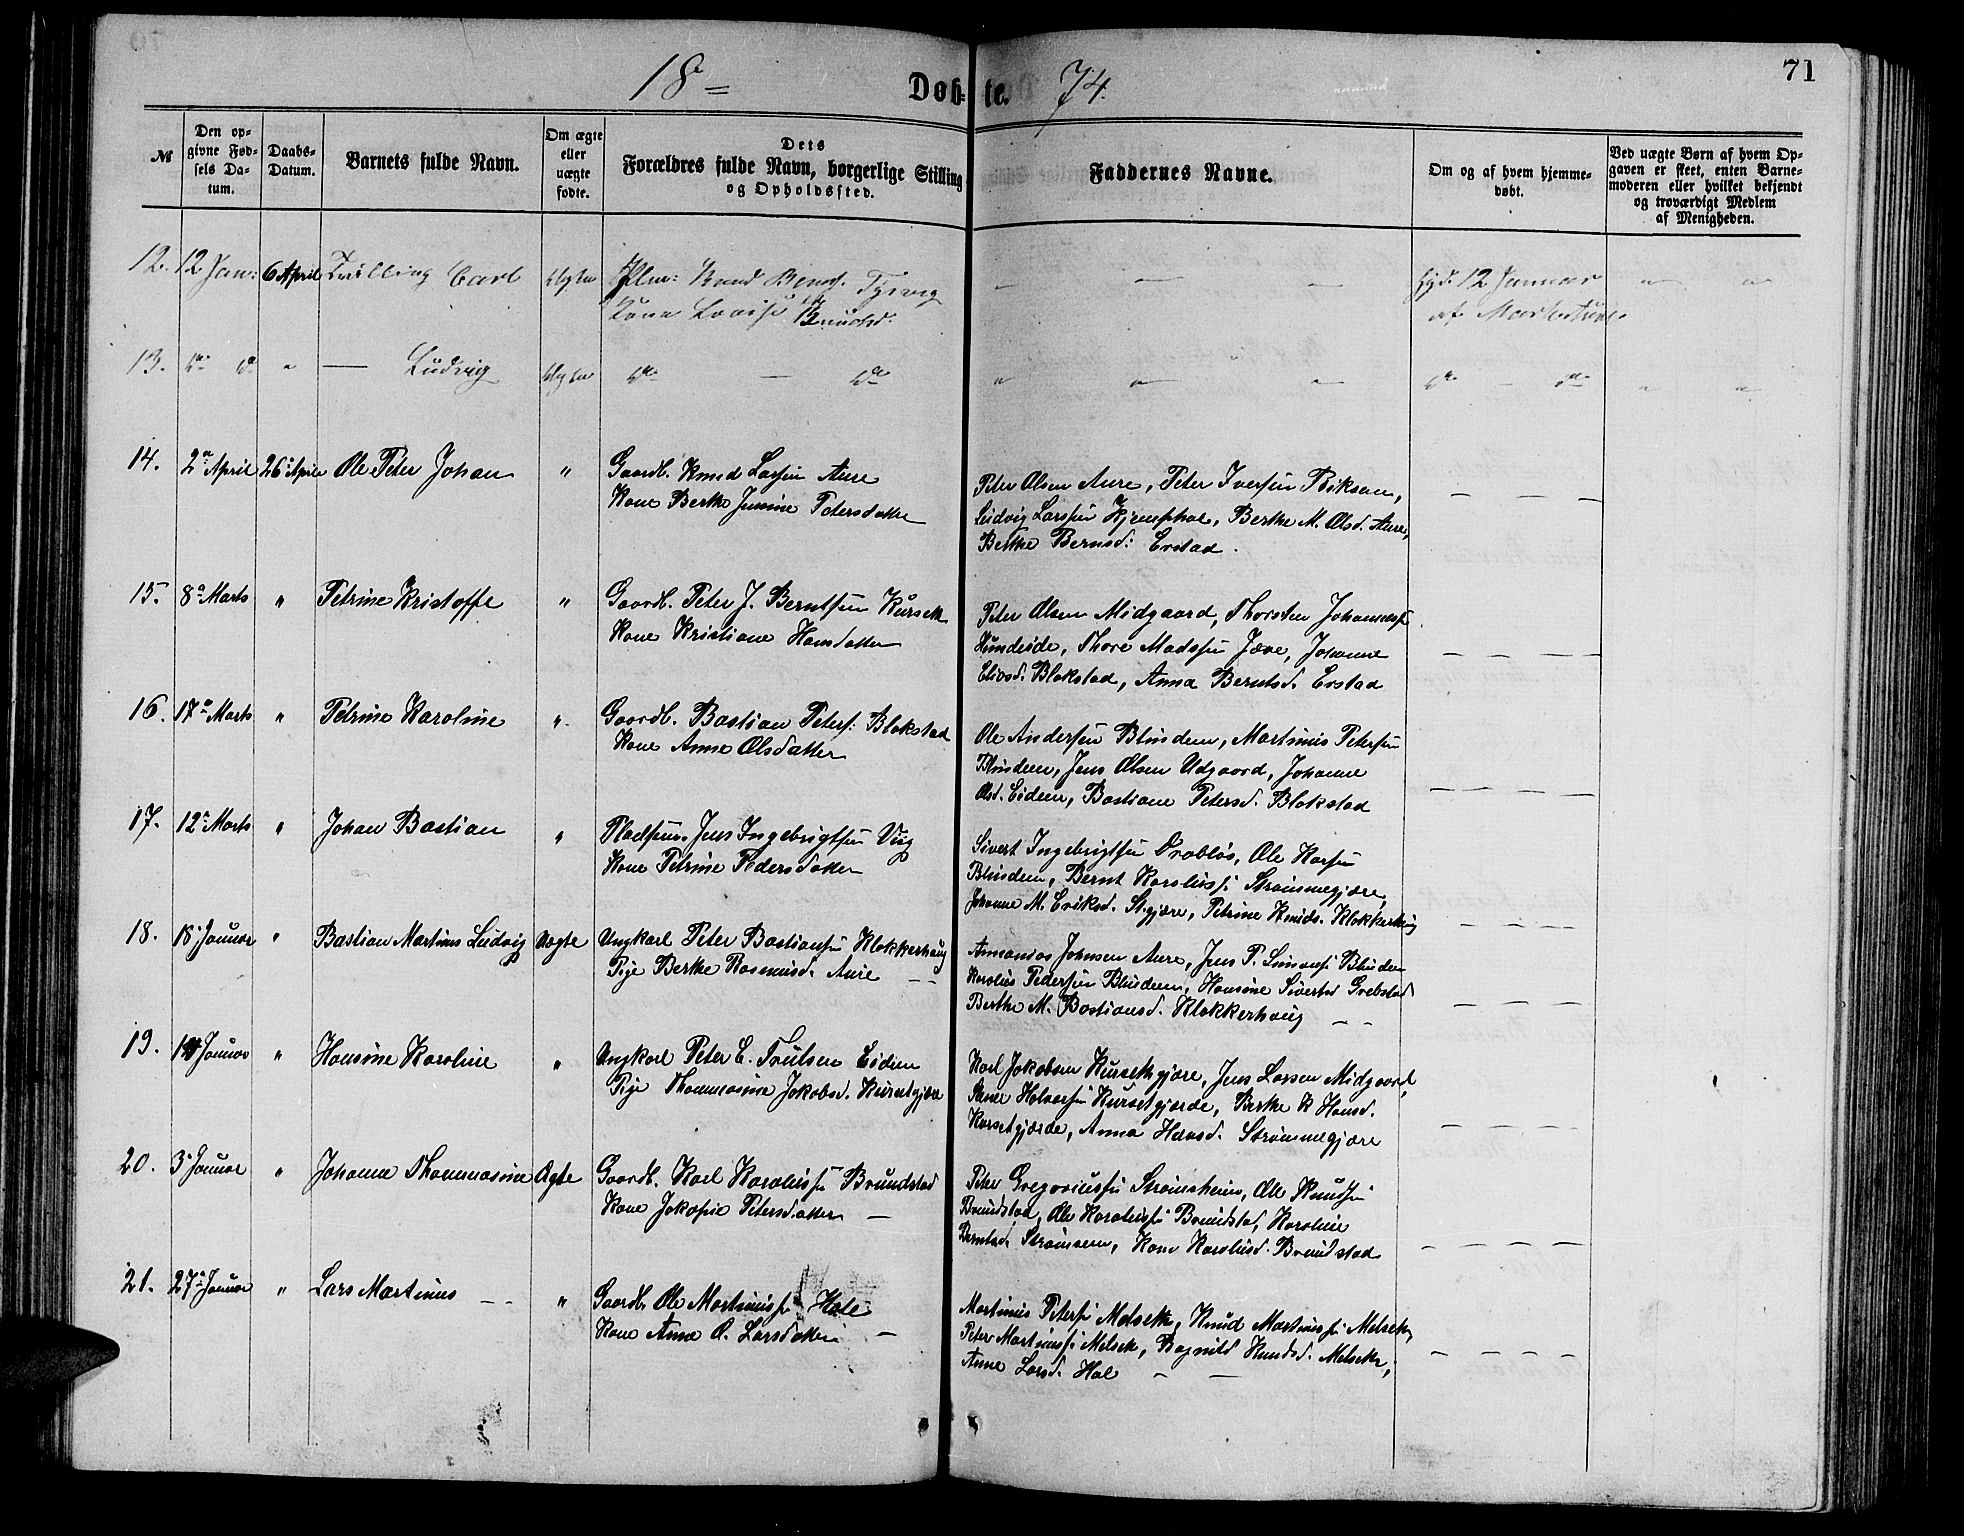 71
18= Døb= te. 74.
№
Den op-
givne Fød-
sels Da-
tum.
Daabs-
Datum.
Barnets fulde Navn.
Om ægte
eller
uægte
fødte.
Dets
Forældres fulde Navn, borgerlige Stilling
og Opholdssted.
Faddernes Navne.
Om og af hvem hjemme-
døbt.
Ved uægte Børn af hvem Op-
gaven er skeet, enten Barne-
moderen eller hvilket bekjendt
og troværdigt Medlem
af Menigheden.
12. 12 Jan: 6 April Tvilling Carl
Kone Lovise Knudsd.
12 Januar
af
13. " — Ludvig
14. 2 April 26 April Ole Peter Johan "
Gaardb. Knud Larsen Aure
Kone Berthe Jensine Petersdatter
Peter Olsen Aure, Peter Iversen
Ludvig Larsen Berthe M. Olsd. Aure,
Berthe Berntsd: Erstad.
15. 8 Marts " Petrine Kristoffe "
Gaardb. Peter J. Berntsen Kursetk
Kone Kristiane Hansdatter
Peter Olsen Midgaard, Thorsten Johannesf
Thore Madssen Jæve, Johanne
Blakstad, Anna Berntsd. Erstad
16. 17 Marts " Petrine Karoline "
Gaardb. Bastian Peters: Blakstad
Kone Anne Olsdatter
Ole Andersen Blindem, Martinus Petersen
Blindem, Jens Olsen Udgaard, Johanne
Olsd. Eidem, Bastiane Petersd. Blakstad
17. 12 Marts " Johan Bastian "
Pladsm. Jens Ingebrigtsen Vig
Kone Petrine Pedersdatter
Sivert Ingebrigtsen Ole
Blindem, Bernt Karolussen Strømmegjære,
Johanne M. Eriksd. St.gjære, Petrine Knuds. Klokkerhaug
18. 18 Januar " Bastian Martinus Ludvig Uægte
Ungkarl Peter Bastiansen Klokkerhaug
Pige Berthe Rasmusd. Aure
Ananias Johnsen Aure, Jens P. Simons Blindem
Karolus Pedersen Blindem, Hansine Sivertsd Grebstad
Berthe M. Bastiansd. Klokkerhaug
19. Januar " Hansine Karoline "
Ungkarl Peter E. Trulsen Eidem
Pige Thommasine Jakobsd. Kursetgjære
Karl Jakobsen Kursethgjære, Jens Larsen Midgaard,
Kursetgjærde, Berthe K Hansd.
Kursetgjærde, Anna Hansd. Strømmegjære
20. 3 Januar " Johanne Thommasine Ægte
Gaardb. Karl Karolussen Brundstad
Kone Jakopie Petersdatter
Peter Gregoriussen Strømsheim, Ole Knudsen
Brundstad, Ole Karolussen Brundstad, Karoline
Berntsd. Strømsem, Karolusd. Brundstad
21. 27 Januar " Lars Martinus "
Gaardb. Ole Martinussen Hole
Kone Anne O. Larsdatter
Martinus Peters Melseth, Knud Martinussen Melseth,
Peter Martinussen Melseth, Ragnild Knudsd. Melseth,
Anne Larsd. Hol